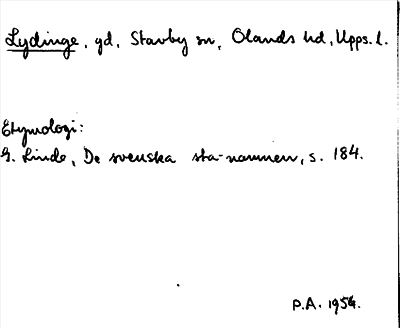 Lydinge, gd, Stavby sn, Olands hd, Upps. l.
Etymologi:
G. Linde, De svenska sta-namnen, s. 184.
P.A. 1954.